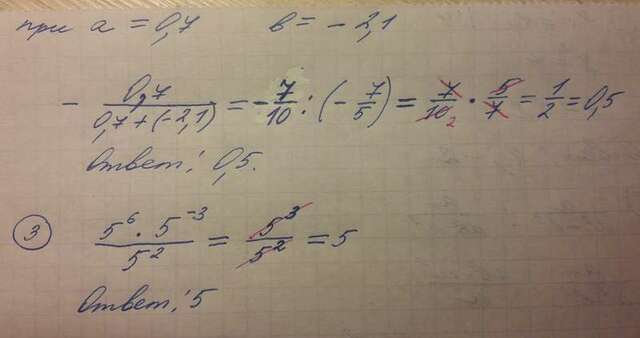 при a = 0,7 в = - 2,1
- 0,7 / (0,7 + (-2,1)) = - 7/10 : (- 7/5) = 7/10 2 · 5/7 = 1/2 = 0,5
Ответ: 0,5.
3 5⁶ · 5⁻³ / 5² = 5³ / 5² = 5
Ответ: 5